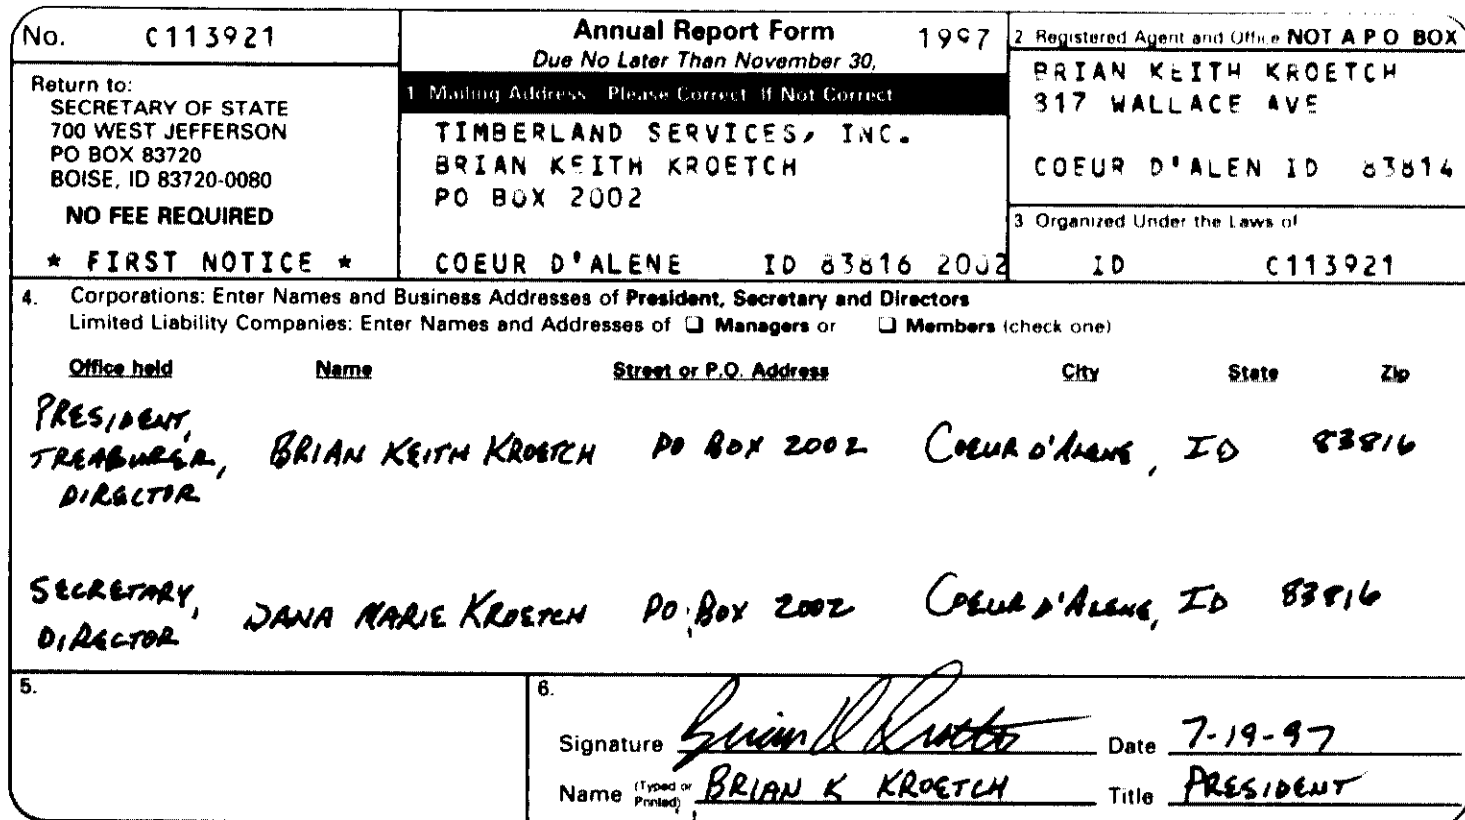 No. C113921
Return to:
SECRETARY OF STATE
700 WEST JEFFERSON
PO BOX 83720
BOISE, ID 83720-0080
NO FEE REQUIRED
* FIRST NOTICE *
Annual Report Form 1997
Due No Later Than November 30,
1 Mailing Address Please Correct If Not Correct
TIMBERLAND SERVICES, INC.
BRIAN KEITH KROETCH
PO BOX 2002
COEUR D'ALENE ID 83816 2002
2 Registered Agent and Office NOT A P O BOX
BRIAN KEITH KROETCH
317 WALLACE AVE
COEUR D'ALEN ID 83814
3 Organized Under the Laws of
ID C113921
4. Corporations: Enter Names and Business Addresses of President, Secretary and Directors
Limited Liability Companies: Enter Names and Addresses of ❑ Managers or ❑ Members (check one)
Office held Name Street or P.O. Address City State Zip
PRESIDENT,
TREASURER, BRIAN KEITH KROETCH PO BOX 2002 COEUR D'ALENE, ID 83816
DIRECTOR
SECRETARY, DANA MARIE KROETCH PO BOX 2002 COEUR D'ALENE, ID 83816
DIRECTOR
5.
6.
Signature Brian K Kroetch Date 7-19-97
Name (Typed or Printed) BRIAN K KROETCH Title PRESIDENT